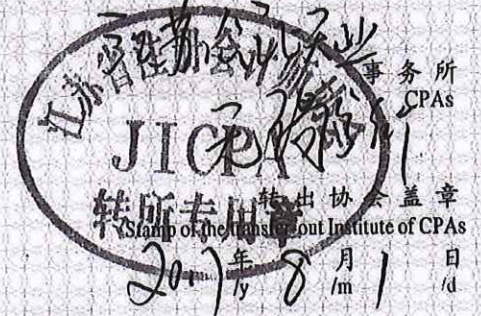 江苏省注册会计师协会
事务所
CPAs
JICPA
转所专用章
转出协会盖章
Stamp of the transfer-out Institute of CPAs
2017年8月1日
/y /m /d